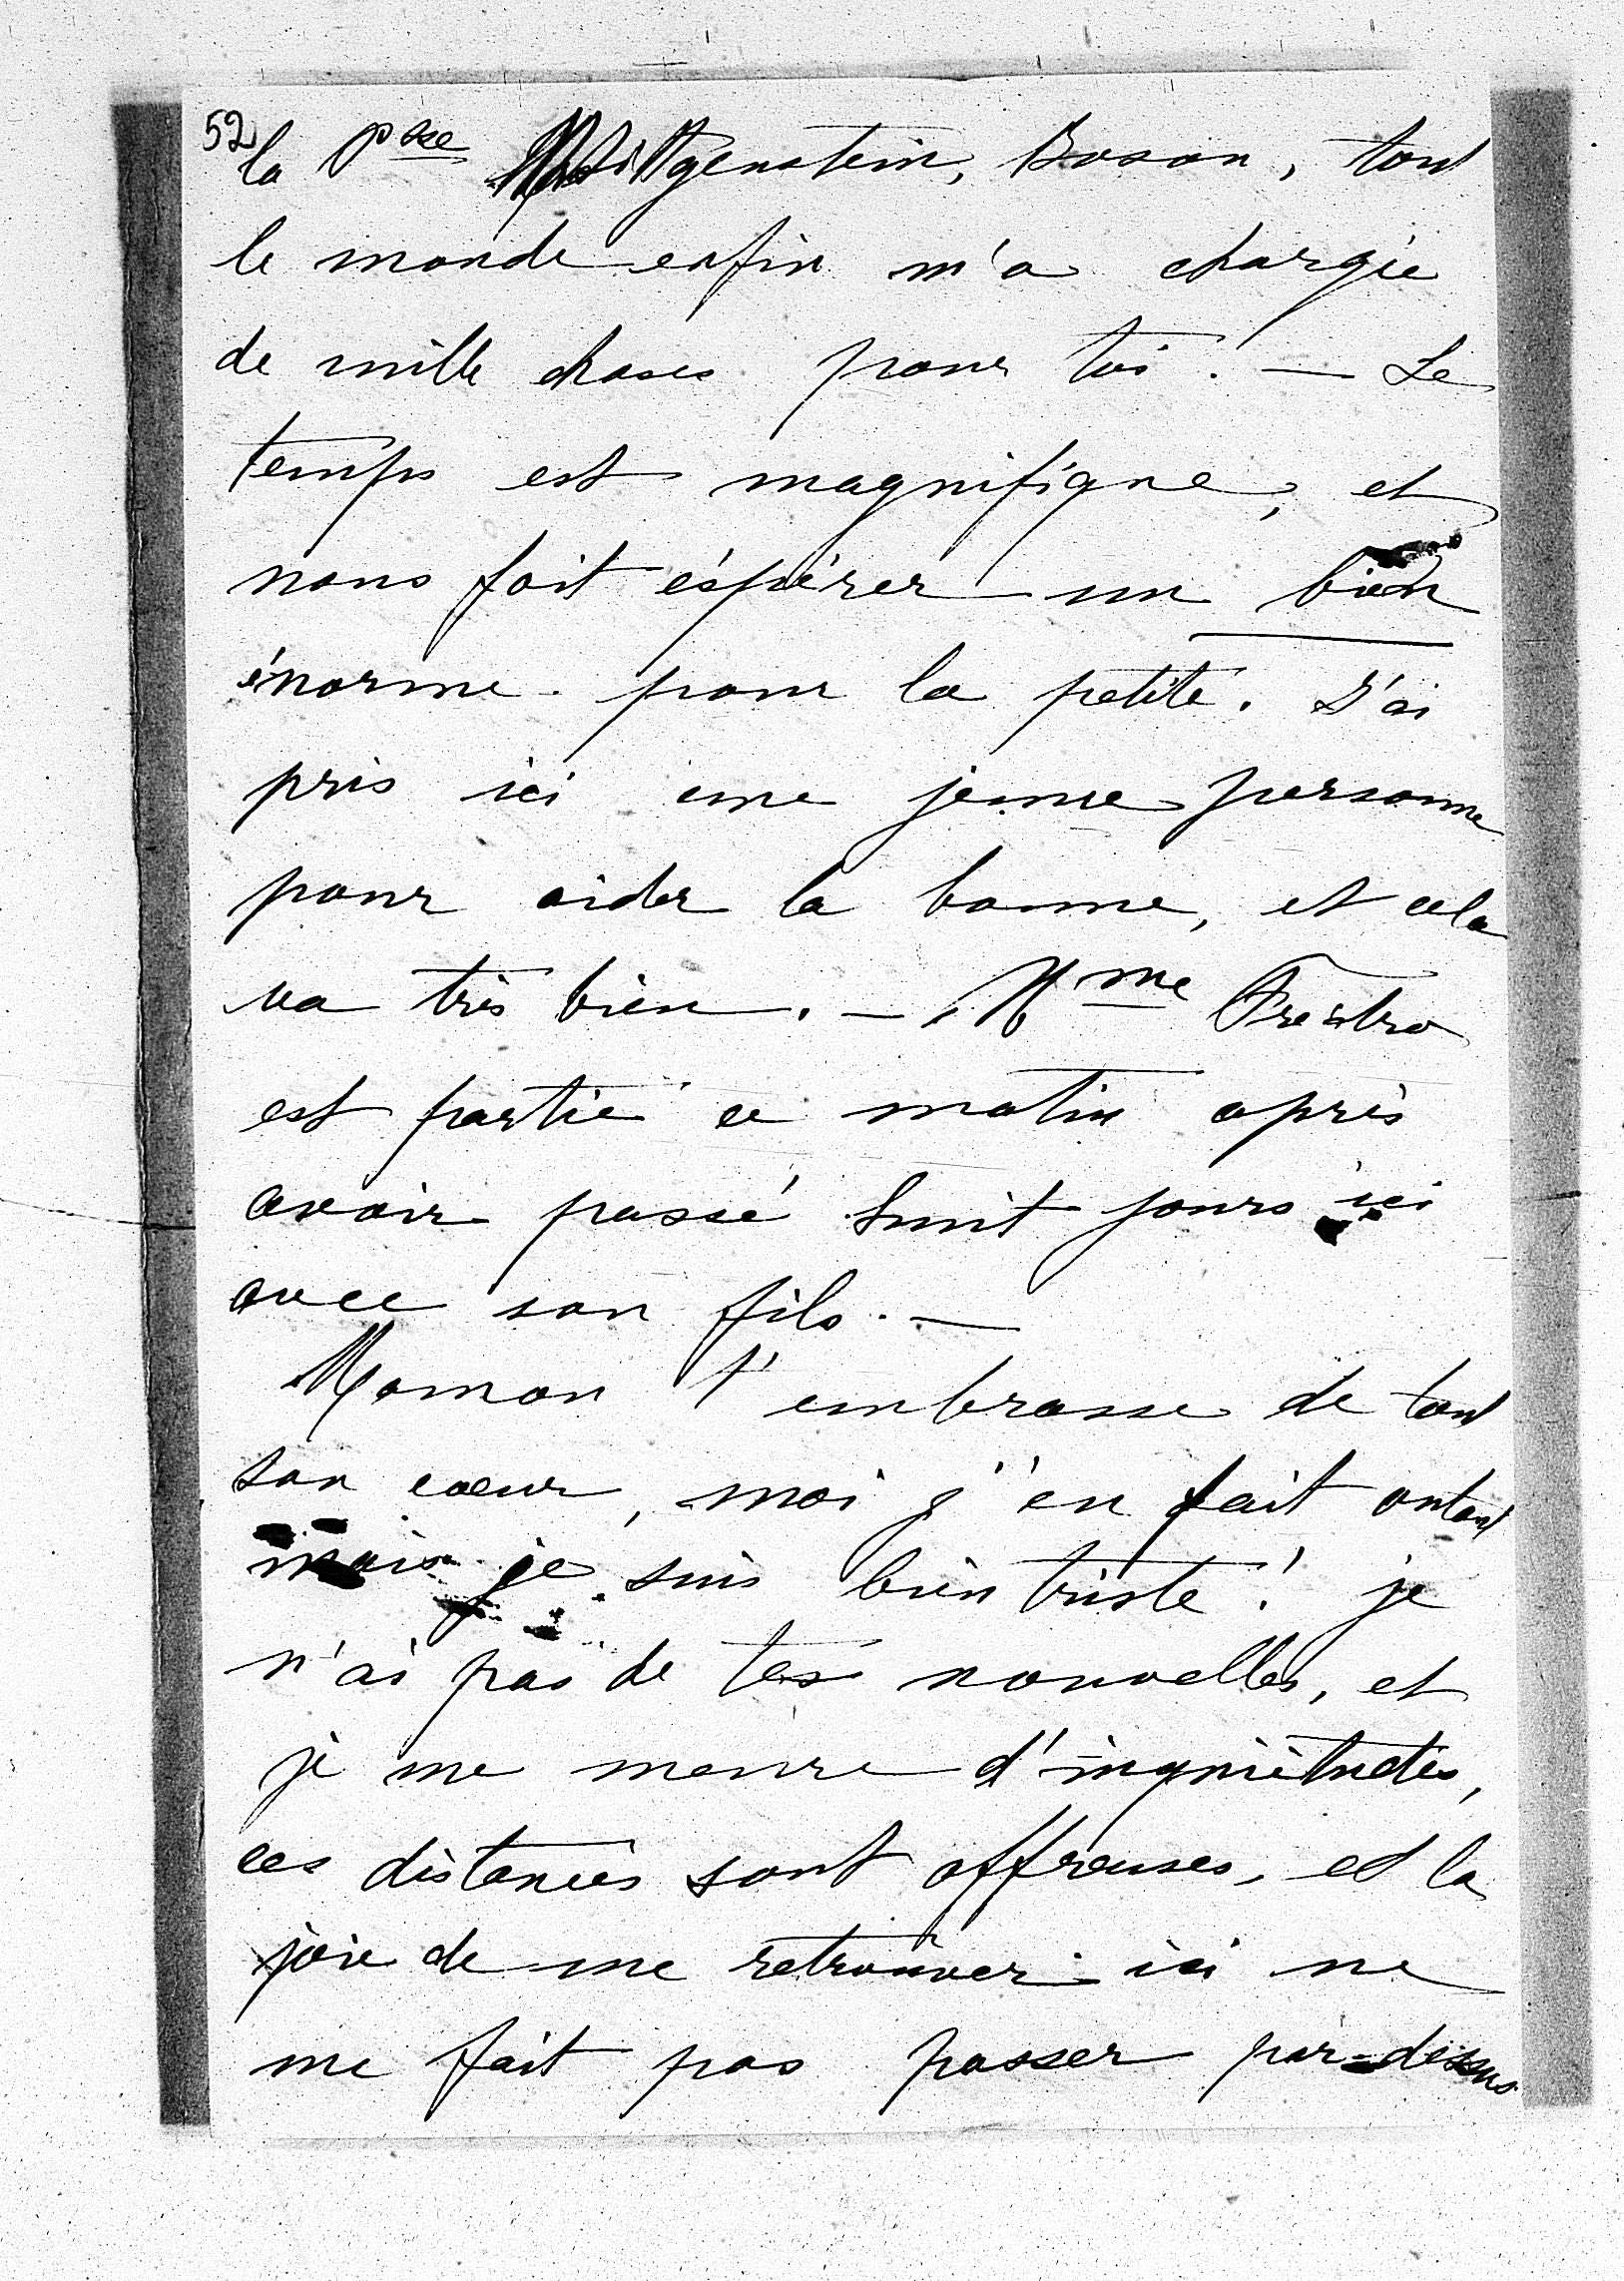 52
la Psse Wittgenstein, Boson, tout
le monde enfin m'a chargée
de mille choses pour toi. — Le
temps est magnifique, et
nous fait éspérer un bien
énorme pour la petite. J'ai
pris ici une jeune personne
pour aider la bonne, et cela
va très bien. — Mme
est partie ce matin après
avoir passé huit jours ici
avec son fils. —
Maman t'embrasse de tout
son coeur, moi j'en fait autant
mais je suis bien triste! je
n'ai pas de tes nouvelles, et
je me meure d'inquiètudes,
ces distances sont affreuses, et la
joie de me retrouver ici ne
me fait pas passer par-dessus